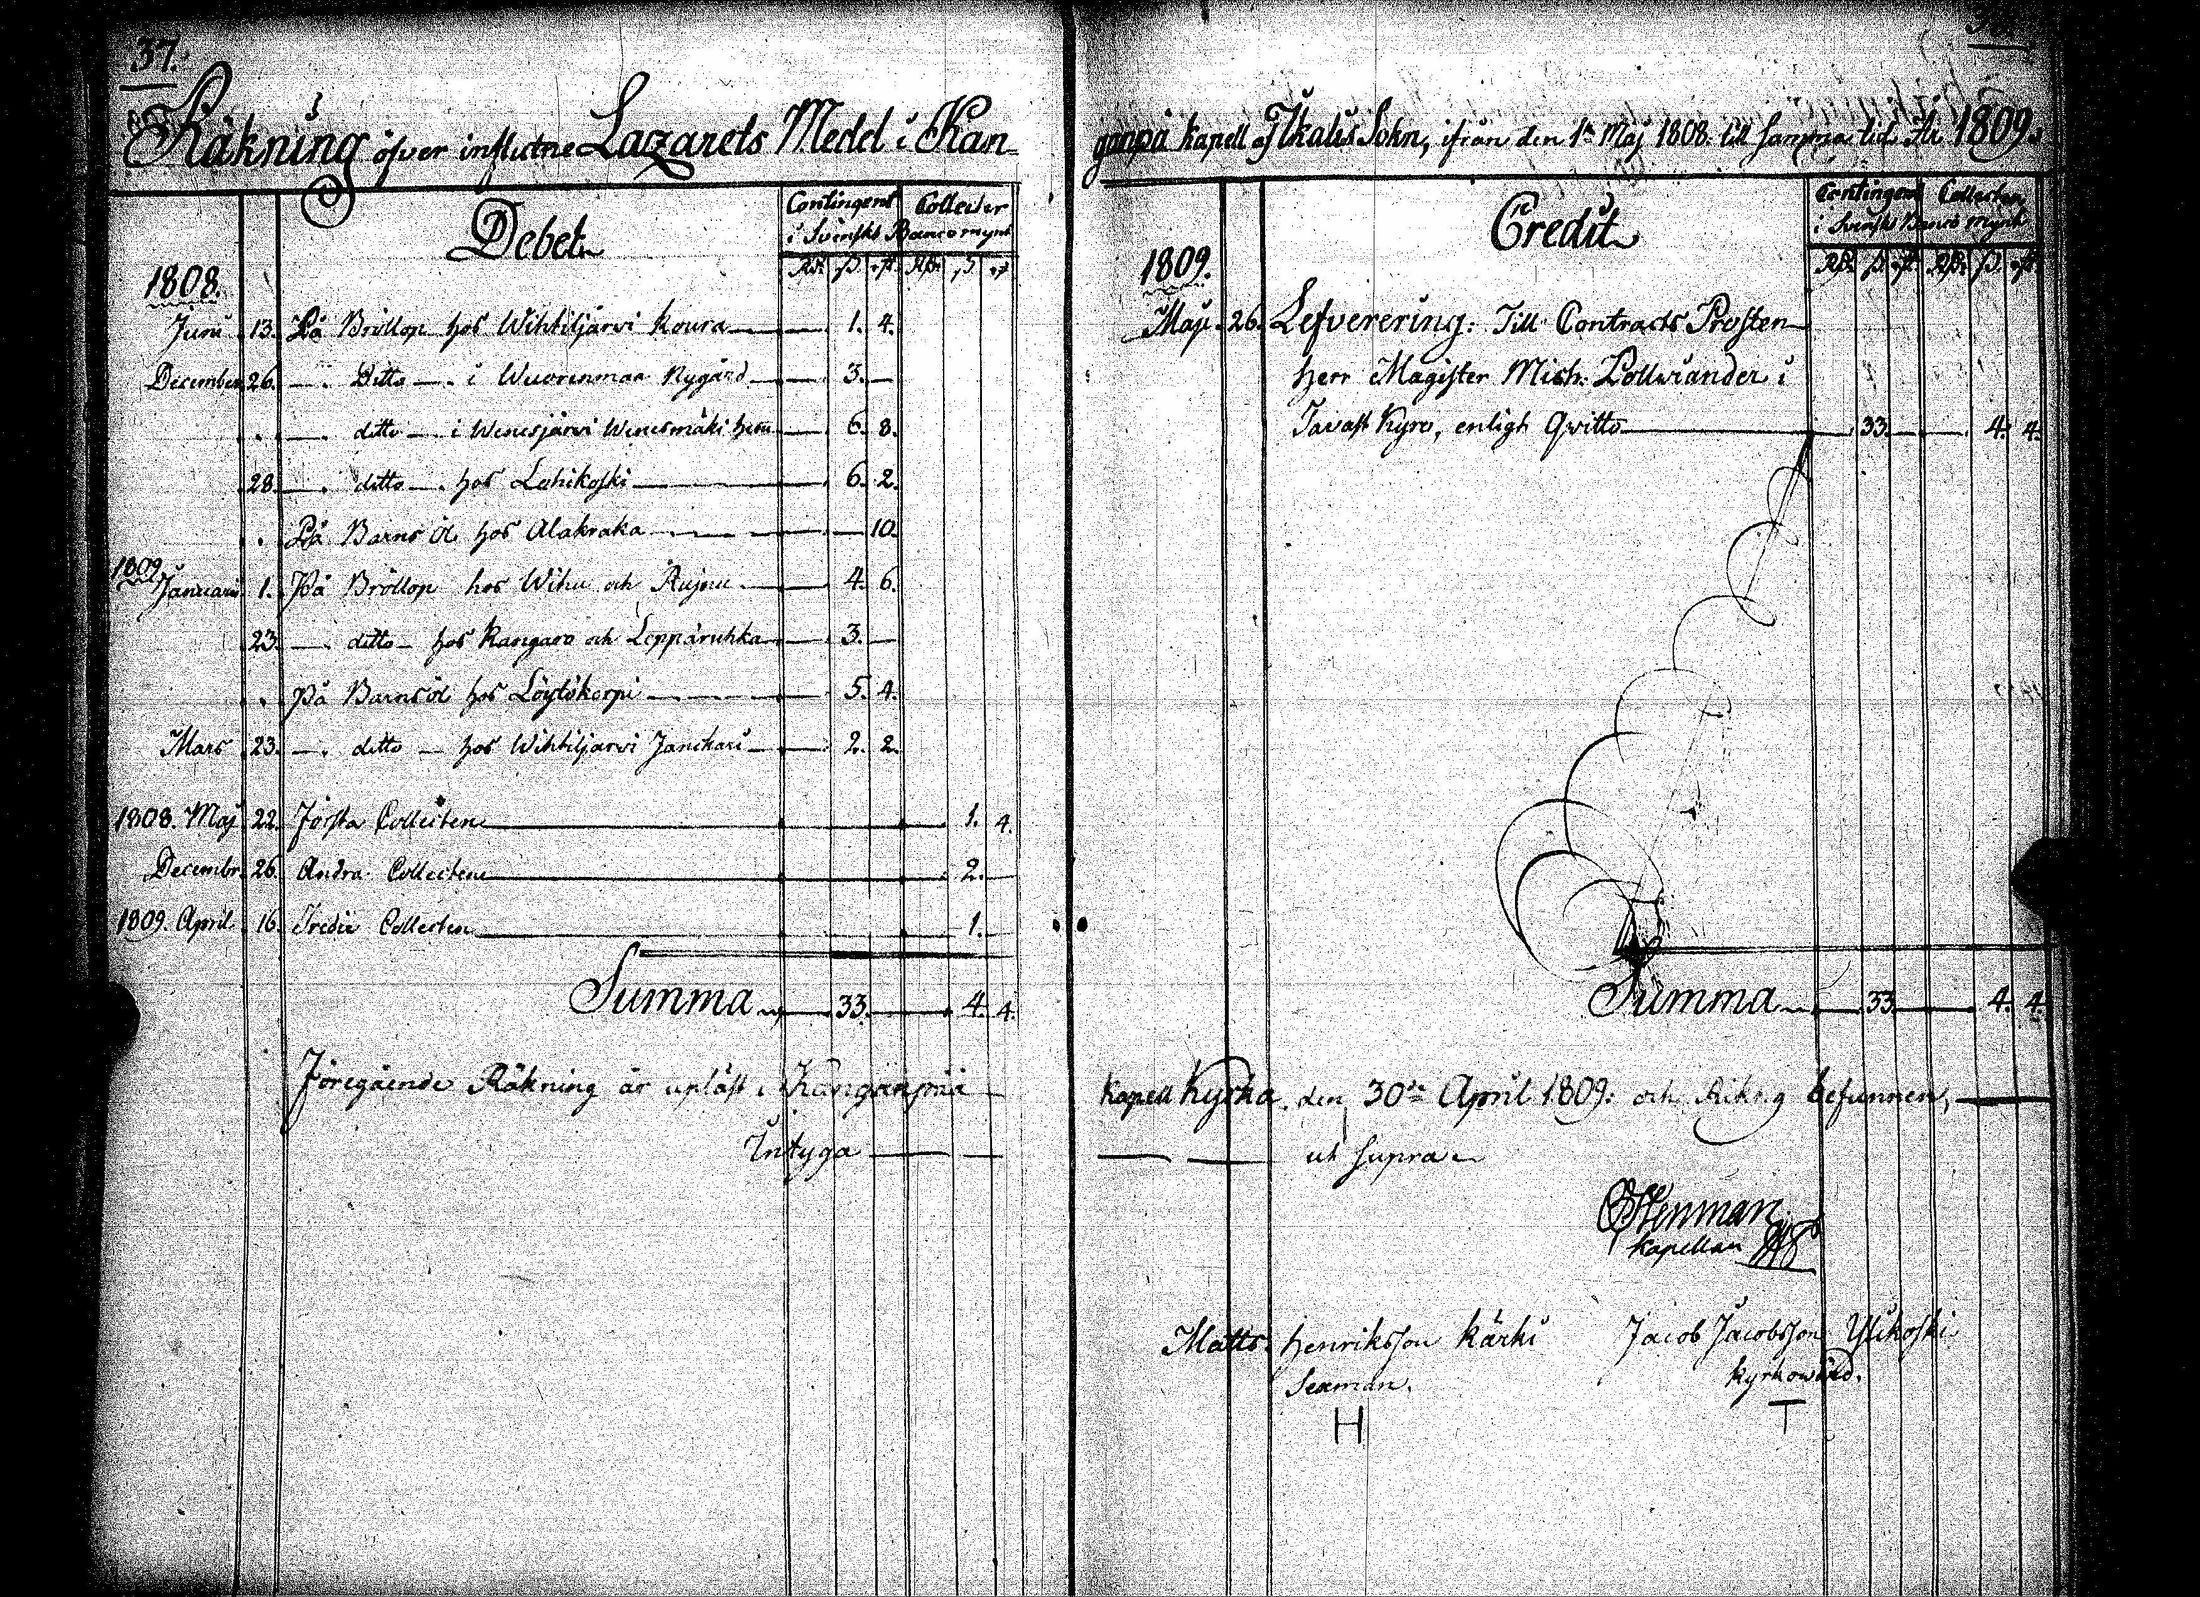 37.
Räkning öfver influtne Lazarets Medel i Kan-
Debet
Contingent Collecter
i Svenskt Banco mynt
Rdr ß. rst. Rdr ß. rst
1808.
Junii 13. På Bröllop hos Wihtiljärwi Koura — 1. 4.
December 26. — Ditto — i Wuorenmaa Nygård — 3. —
— ditto — i Wenesjärwi Wenesmäki — 6. 8.
28. — ditto — hos Lahikoski — 6. 2.
På Barns öl hos Alakraka — — 10.
1809
Januarii 1. På Bröllop hos Wihu och — 4. 6.
23. — ditto — hos Kangaro och Leppäruhka — 3. —
På Barnsöl hos Löytökorpi — 5. 4.
Mars 23. — ditto — hos Wihtiljärwi Janikari — 2. 2.
1808. Maj 22. Första Collecten — 1. 4.
Decembr. 26. Andra Collecten — 2. —
1809. April 16. Tredie Collecten — 1. —
Summa — 33. — 4. 4.
Föregående Räkning är upläst i Kanganpää
Intyga — —
ganpä kapell af Ikalis Sokn, ifrån den 1a Maj 1808. till samma tid År 1809.
Credit
Contingent Collecter
i Svenskt Banco mynt
Rdr ß. rst. Rdr ß. rst.
1809.
Maji 26. Lefverering: Till Contracts Prosten
Herr Magister Mich: Pollviander i
Tavast Kyro, enligh Qvitto — 33. — 4. 4.
Summa — 33. — 4. 4.
Kapell Kyrka, den 30de April 1809. och Riktig befunnen, —
— — ut supra
Stenman
Kapellan
Matts Henriksson Kärki Jacob Jacobsson Ylikoski
Sexman. Kyrkowärd.
H T